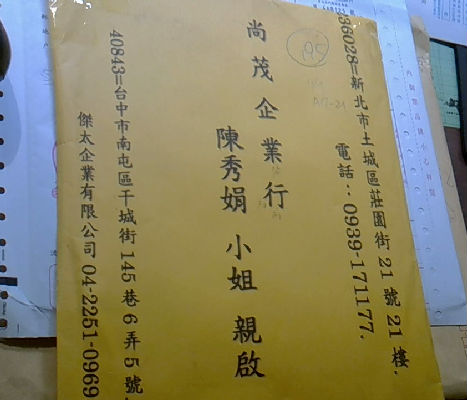 36028=新北市土城區莊園街21號21樓.
電話：0939-171177.
尚茂企業行
陳秀娟 小姐 親啟
40843=台中市南屯區干城街145巷6弄5號
傑太企業有限公司 04-2251-0969